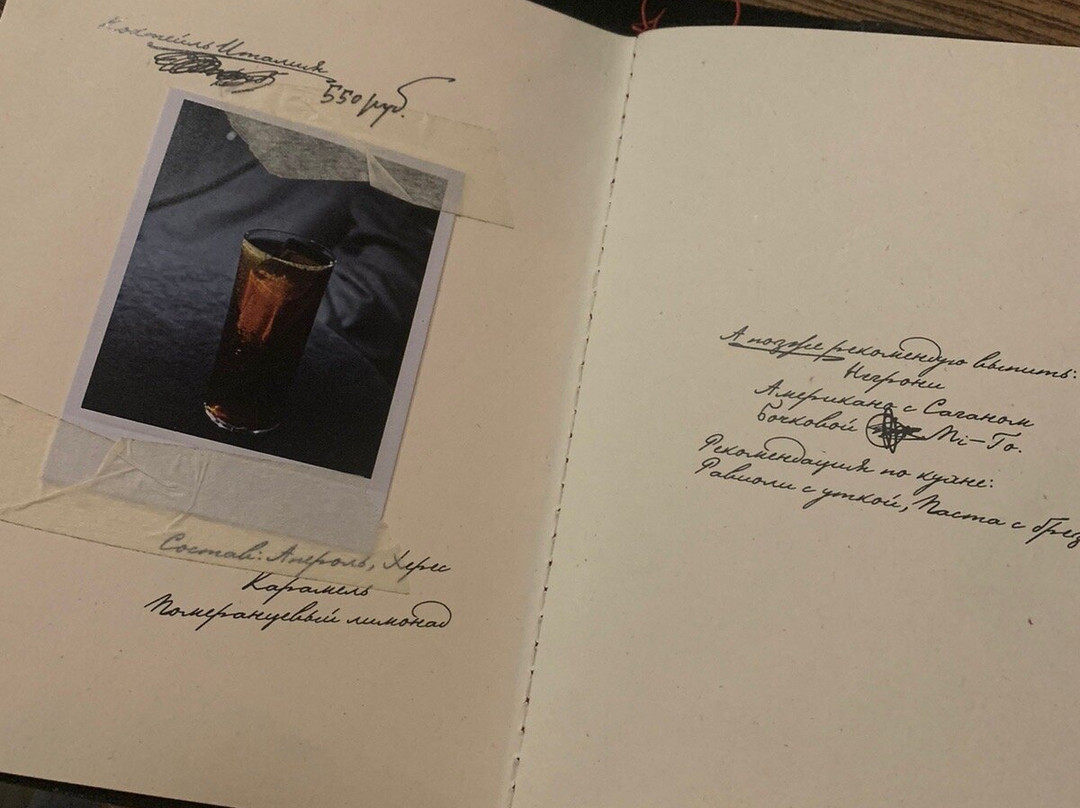 Коктейль Италия
550 руб.
Состав: Апероль, Херес
Карамель
Померанцевый лимонад
А позже рекомендую выпить:
Негрони
Американо с Саганом
Бочковой Mi-To.
Рекомендация по кухне:
Равиоли с уткой, Паста с